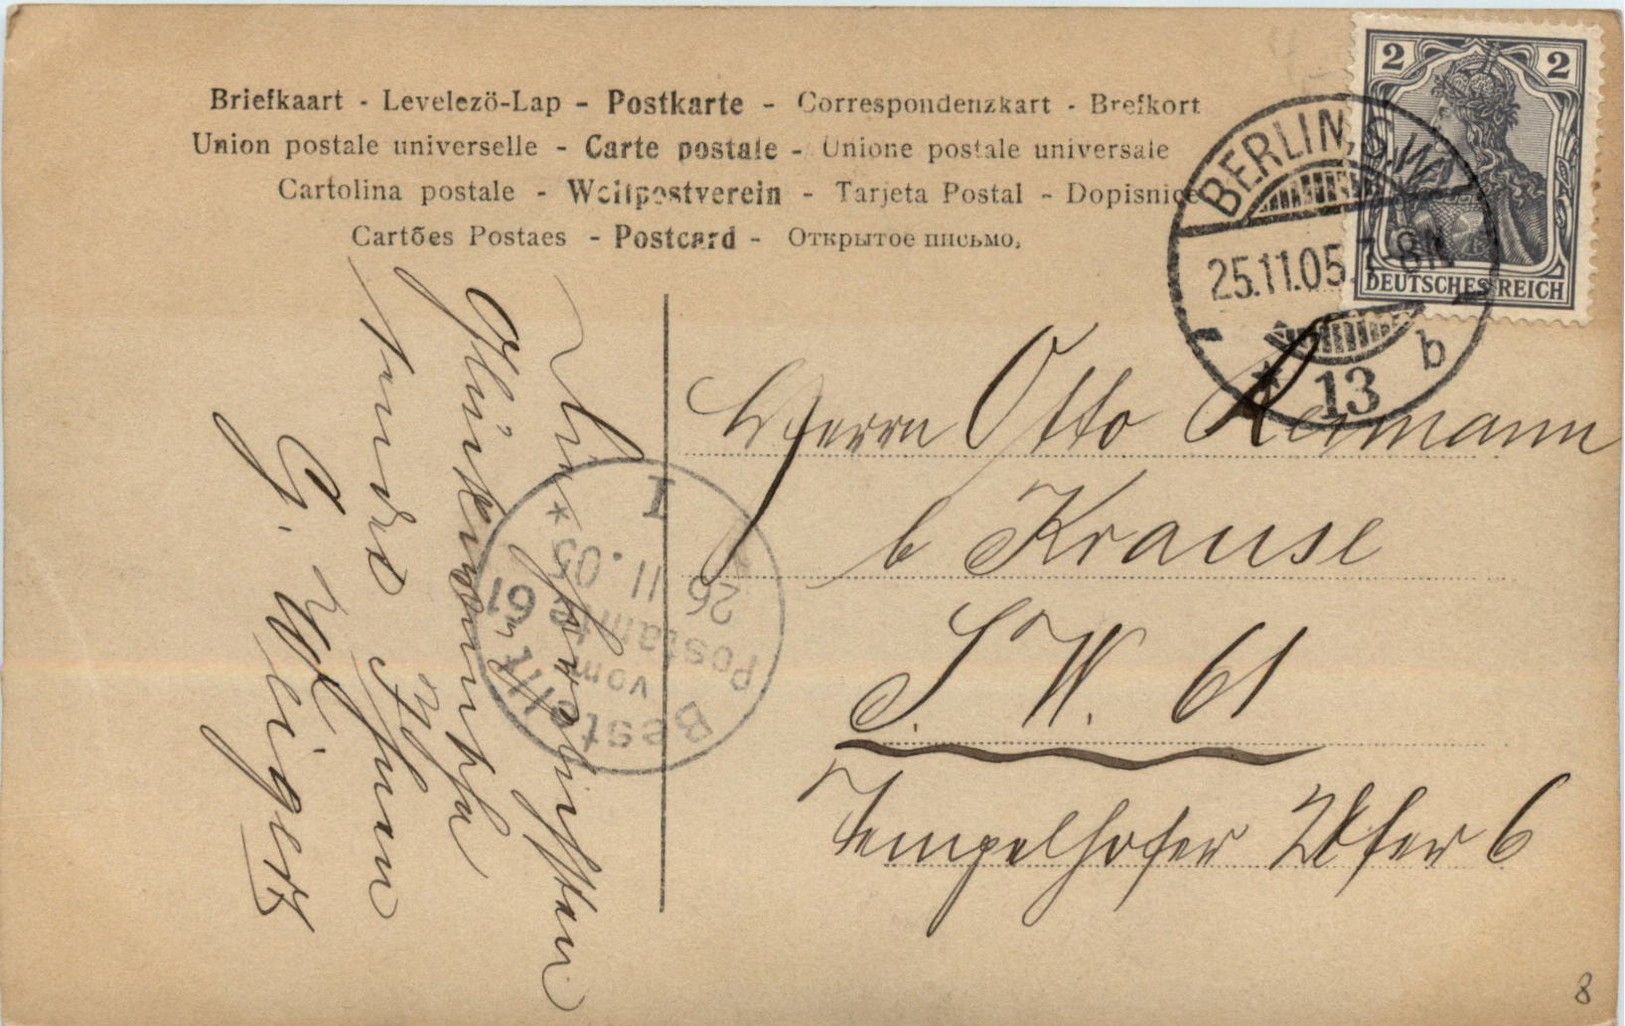 Briefkaart - Levelezö-Lap - Postkarte - Correspondenzkart - Brefkort
Union postale universelle - Carte postale - Unione postale universale
Cartolina postale - Weltpostverein - Tarjeta Postal - Dopisnice
Cartões Postaes - Postcard - Открытое письмо.
2 2
DEUTSCHES REICH
BERLIN, S.W.
25.11.05. 7-8N
* 13 b
Herrn Otto Reimann
b Krause
S. W. 61
Tempelhofer Ufer 6
Die herzlichsten
Glückwünsche
sendet Ihnen
G. Weigert
Bestellt
vom
Postamte 61
26 11. 05
* I
8